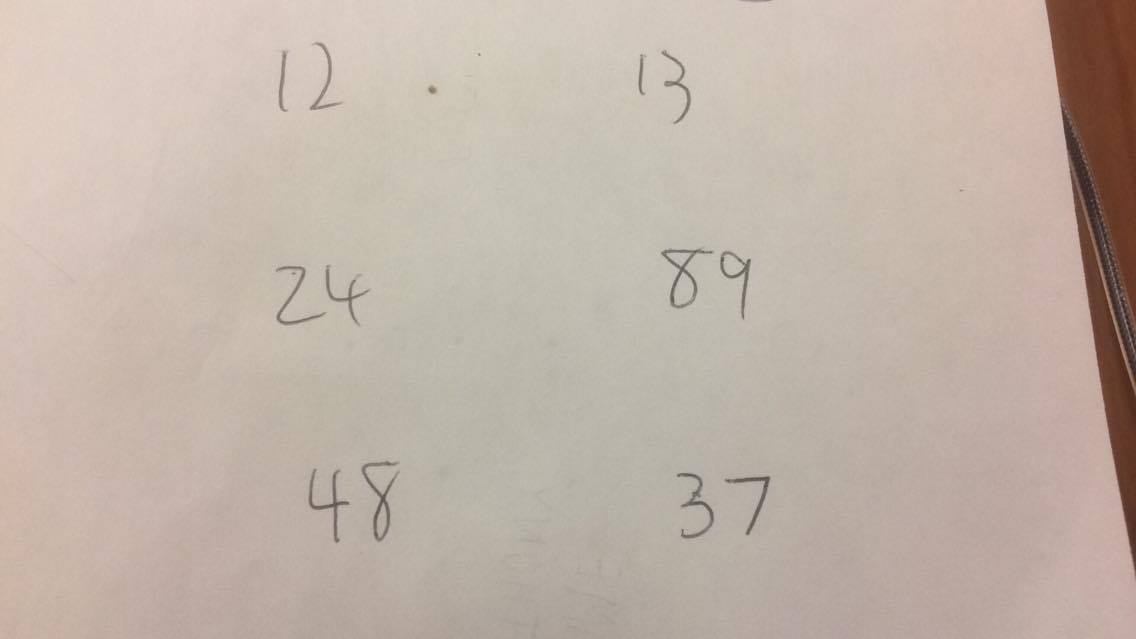 12 13
24 89
48 37